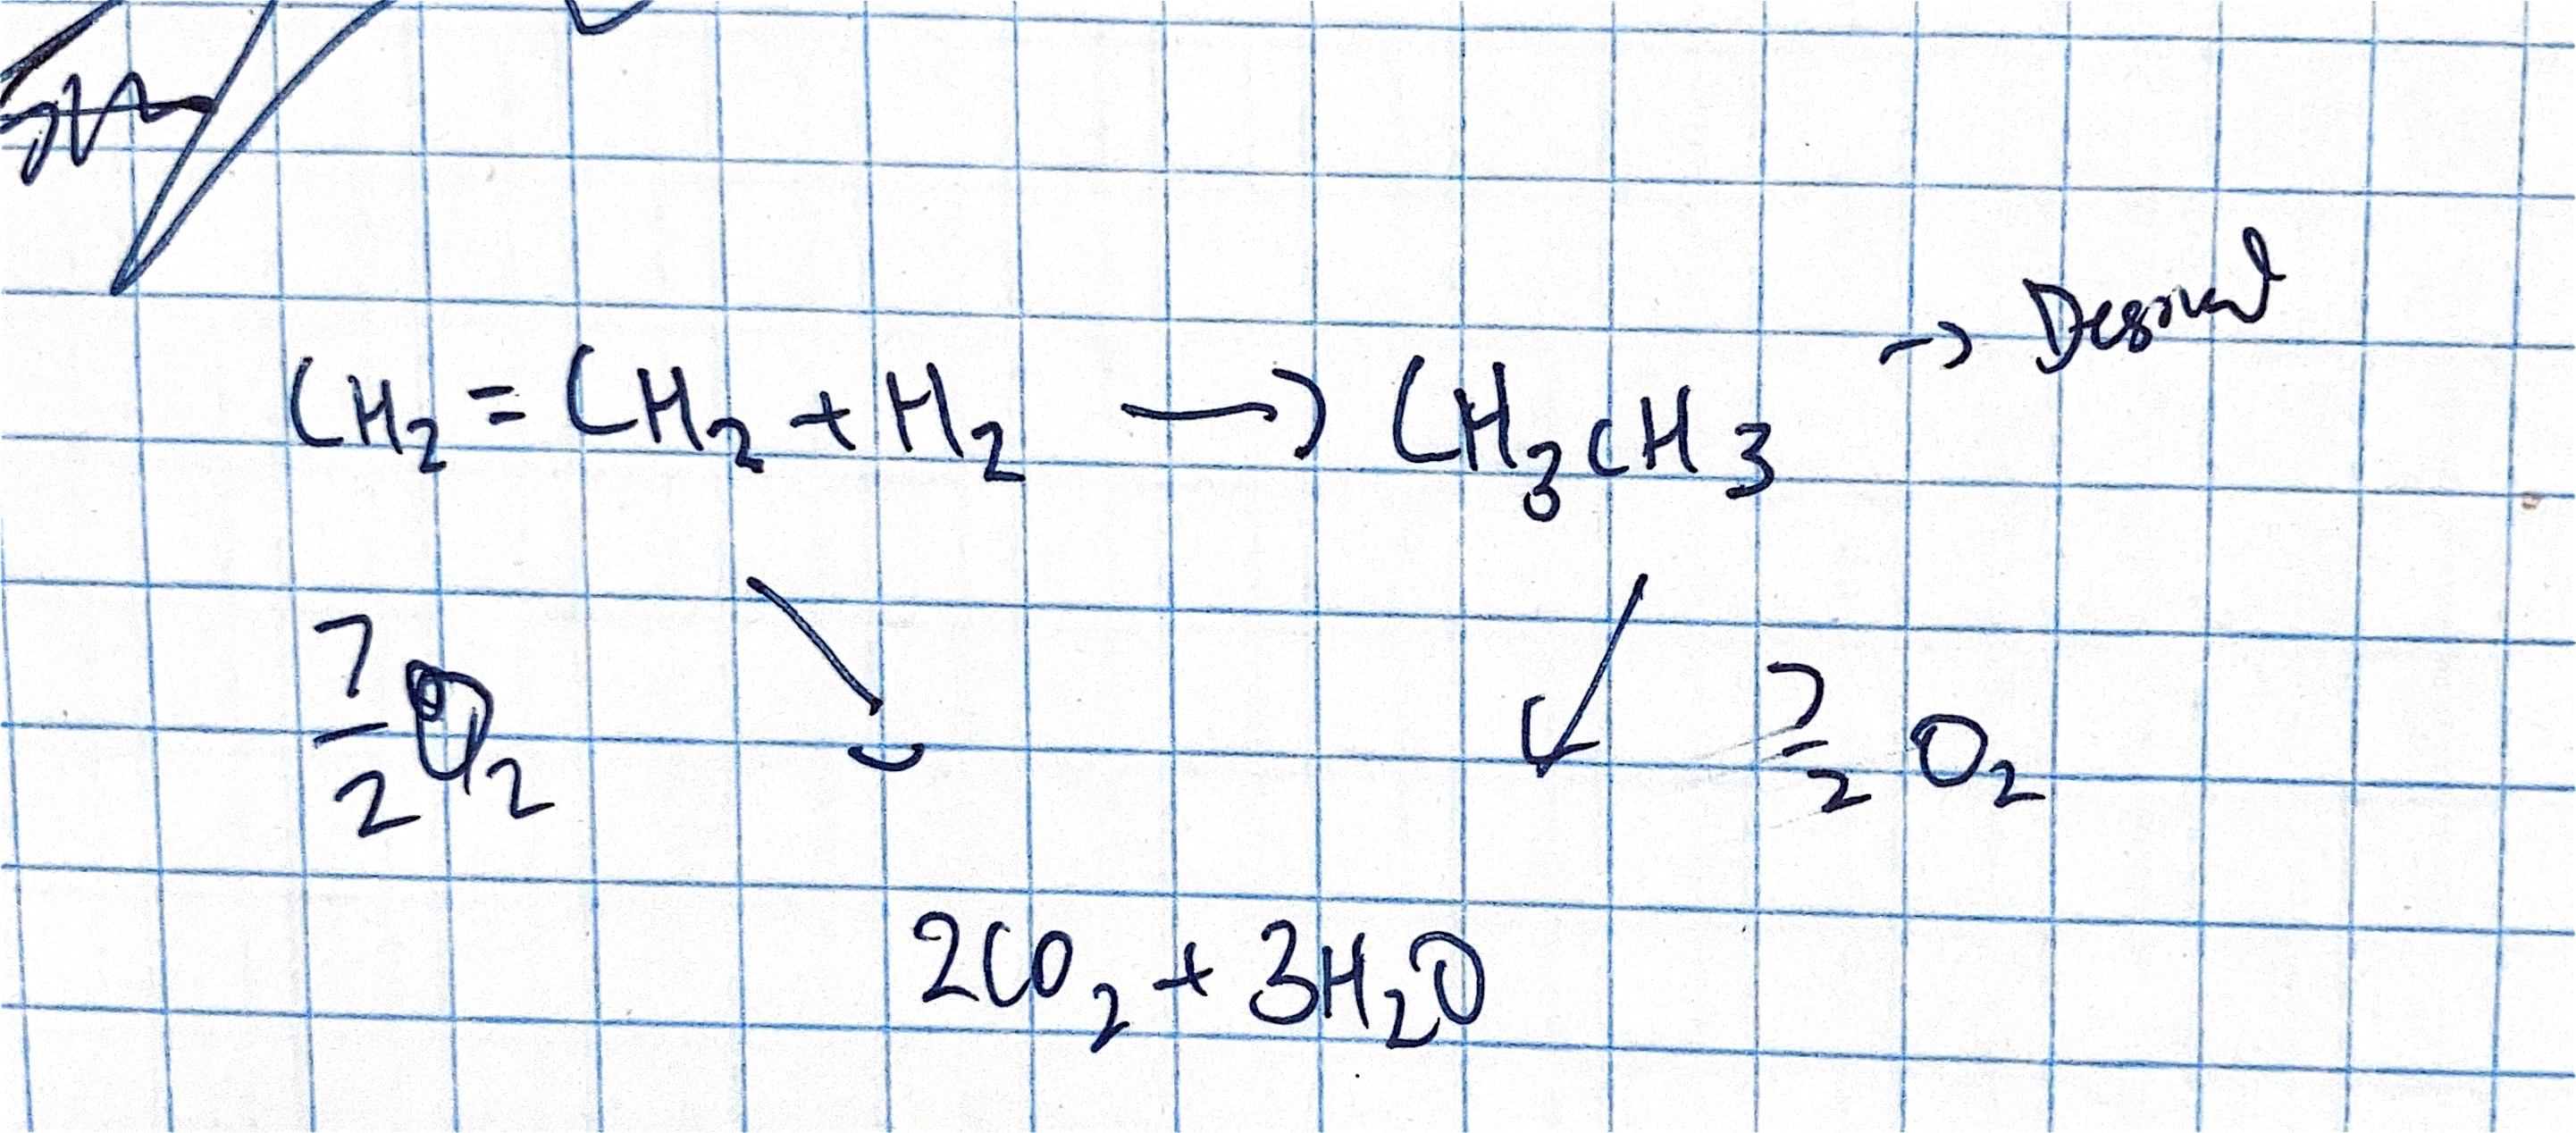 CH₂ = CH₂ + H₂ → CH₃CH₃ → Desired
7/2 O₂ ↘ ↙ 7/2 O₂
2CO₂ + 3H₂O